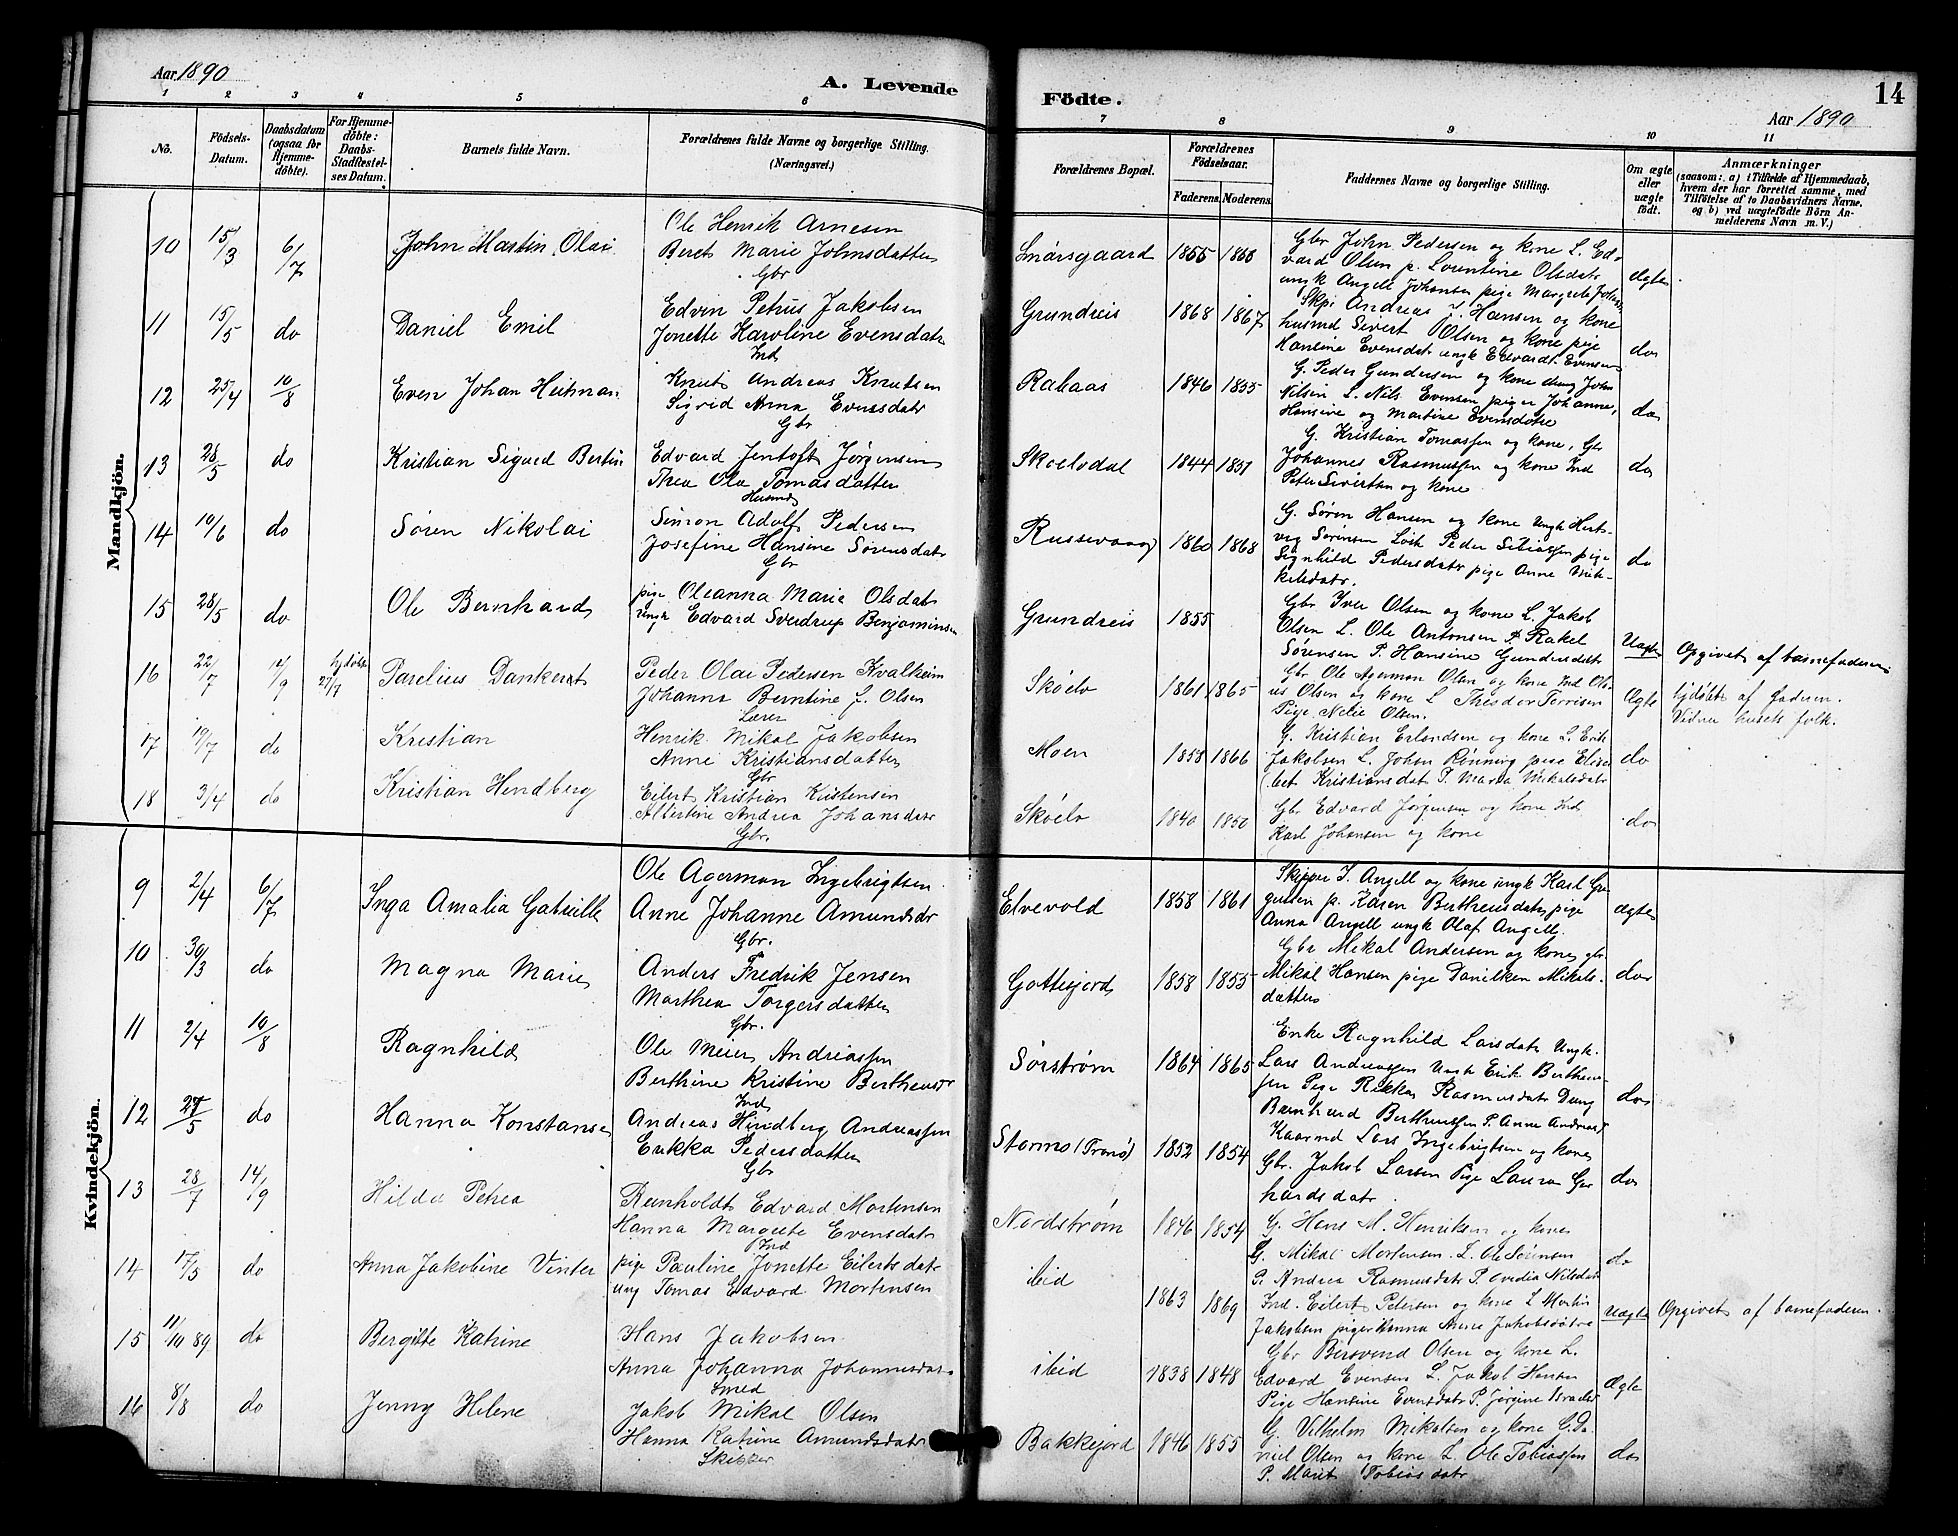 Aar 1890
A. Levende
Födte.
14
Aar 1890
1 2 3 4 5 6 7 8 9 10 11
No.
Födsels-Datum.
Daabsdatum (ogsaa for Hjemme-döbte).
For Hjemme-döbte: Daabs-Stadfæstel-ses Datum.
Barnets fulde Navn.
Forældrenes fulde Navne og borgerlige Stilling. (Næringsvei.)
Forældrenes Bopæl.
Forældrenes Födselsaar.
Faderens. Moderens.
Faddernes Navne og borgerlige Stilling.
Om ægte eller uægte födt.
Anmærkninger
(saasom: a) i Tilfælde af Hjemmedaab,
hvem der har forrettet samme, med
Tilföielse af to Daabsvidners Navne,
og b) ved uægtefödte Börn An-
melderens Navn m. V.)
Mandkjön.
10 15/3 6/7 John Martin Olai
Ole Henrik Arnesen
Beret Marie Johnsdatter
Gbr
Smørsgaard 1855
Gbr John Pedersen og kone L. Ed-
vard Olsen p. Lorentine Olsdatr
ungk Angell Johansen pige Margrete
ægte
11 15/5 do Daniel Emil
Edvin Petrus Jakobsen
Jonette Karoline Evensdatr
Ind
Grundreis 1868 1867
Skpr Andreas J. Hansen og kone
husmd Sivert Olsen og kone pige
Hansine Evensdatr ungk Edvardt Evensen
do
12 25/4 10/8 Even Johan Heitman
Knut Andreas Knutsen
Sigrid Anna Evensdatr
Gbr
Rabaas 1846 1855
G. Peder Gundersen og kone dreng John
Nilsen L. Nils Evensen piger Johanne,
Hansine og Martine Evensdøtre
do
13 28/5 do Kristian Sigvard Bertin
Edvard Jentoft Jørgensen
Thea Ola Tomasdatter
Husmd
Skoelvdal 1844 1851
G. Kristian Tomassen og kone, Gbr
Johannes Rasmussen og kone Ind
Peter Sivertsen og kone
do
14 10/6 do Søren Nikolai
Simon Adolf Pedersen
Josefine Hansine Sørensdatr
Gbr
Russevaag 1860 1868
G. Søren Hansen og kone Ungk Hart-
vig Sørensen Løsk Peder Tobiassen pige
Signhild Pedersdatr pige Anne Mik-
kelsdatr.
do
15 28/5 do Ole Bernhard
pige Oleanna Marie Olsdatr
ungk Edvard Sverdrup Benjaminsen
Grundreis 1855
Gbr Iver Olsen og kone L. Jakob
Olsen L. Ole Antonsen P. Rakel
Sørensen P. Hansine Gundersdatr
Uægte
Opgivet af barnefaderen
16 22/7 14/9 hjdøbt 27/7 Parelius Dankert
Peder Olai Pedersen Kvalheim
Johanna Berntine f. Olsen
Lærer
Skøelv 1861 1865
Gbr Ole Agermon Olsen og kone Ind Ola-
us Olsen og kone L Theodor Torrisen
Pige Nelie Olsen.
Ægte
hjdøbt af faderen.
Vidner husets folk.
17 19/7 do Kristian
Henrik Mikal Jakobsen
Anne Kristiansdatter
Gbr
Moen 1858 1866
G. Kristian Erlandsen og kone L. Erik
Jakobsen L. Johan Rønning pige Elisa-
bet Kristiansdat P. Marta Mikalsdatr
do
18 3/4 do Kristian Hendberg
Eilert Kristian Kristensen
Albertine Andrea Johansdatr
Gbr.
Skøelv 1840 1850
Gbr Edvard Jørgensen og kone Ind
Karl Johansen og kone
do
Kvindekjön.
9 2/4 6/7 Inga Amalia Gabrielle
Ole Agerman Ingebrigtsen
Anne Johanne Amundsdr
Gbr.
Elvevold 1858 1861
Skipper I. Angell og kone ungk Karl Gre-
gusen p. Karen Bertheusdatr, pige
Anna Angell ungk Olaf Angell.
ægte
10 30/3 do Magna Marie
Anders Fredrik Jensen
Marthea Torgersdatter
Gbr.
Gottesjord 1858 1855
Gbr Mikal Andersen og kone, gbr
Mikal Hansen pige Danilken Mikals-
datter
do
11 2/4 10/8 Ragnhild
Ole Meier Andreassen
Berthine Kristine Bertheusdr
Ind
Sørstrøm 1864 1865
Enke Ragnhild Larsdatr Ungk.
Lars Andreassen Ungk Erik Bertheus-
sen Pige Rikka Rasmusdatr Dreng
Bernhard Bertheussen P. Anne Andreasd
do
12 27/5 do Hanna Konstanse
Andreas Hindberg Andreassen
Erikka Pedersdatter
Gbr
Stormo (Tranø) 1852 1854
Kaarmd Lars Ingebrigtsen og kone
Gbr. Jakob Larsen Pige Laura Ger-
hardsdatr.
do
13 28/7 14/9 Hilda Petrea
Reinholdt Edvard Mortensen
Hanna Margrete Evensdatr
Ind
Nordstrøm 1846 1854
G. Hans M. Henriksen og kone
G. Mikal Mortensen. L. Ole Sørensen
P. Andrea Rasmusdatr P. Ovedia Nilsdatr
do
14 17/5 do Anna Jakobine Vinter
pige Pauline Jonette Eilertsdatr
ung Tomas Edvard Mortensen
ibid 1863 1869
Ind. Eilert Petersen og kone L Martin
Jakobsen piger Hanna Anne Jakobsdøtre
Uægte
Opgivet af barnefaderen.
15 11/10 89 do Bergitte Katrine
Hans Jakobsen
Anna Johanna Johannesdatr
Smed
ibid 1838 1848
Gbr Bersvend Olsen og kone L.
Edvard Evensen L. Jakob Hansen
Pige Hansine Evensdatr P. Jørgine
Ægte
16 8/8 do Jenny Helene
Jakob Mikal Olsen
Hanna Katrine Amundsdatr
Skipper
Bakkejord 1846 1855
G. Vilhelm Mikalsen og kone G. Da-
niel Olsen og kone L. Ole Tobiassen
P. Marit Tobiasdatr
do